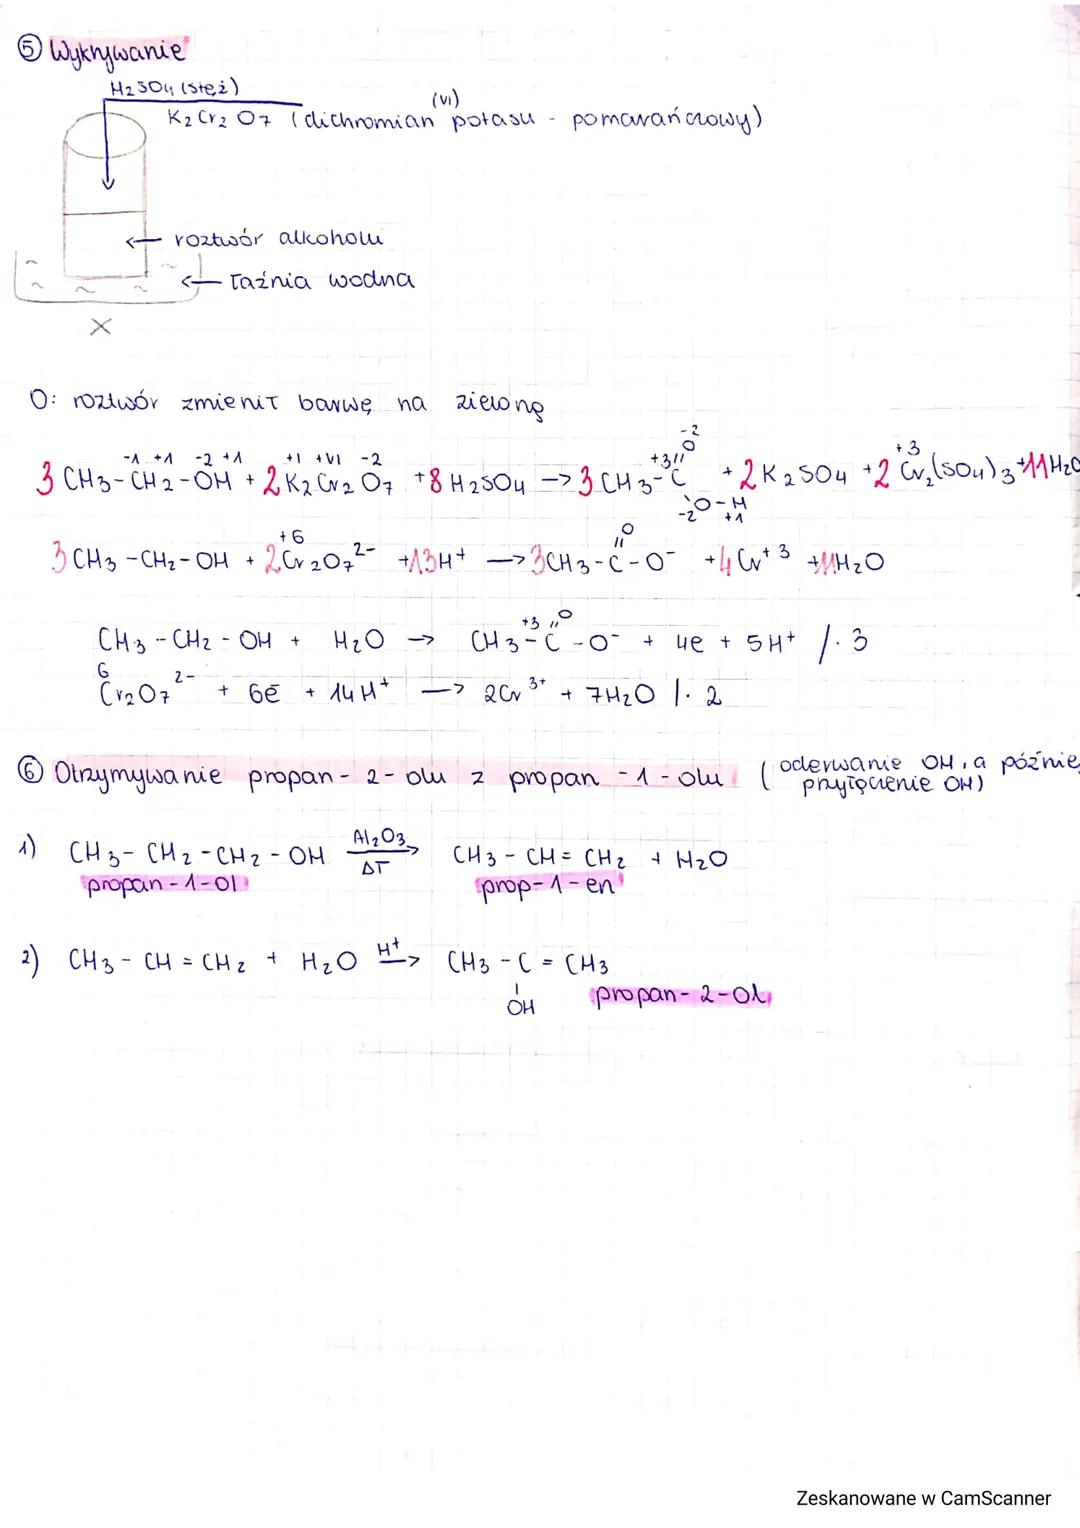 ⑤ Wykrywanie
H2SO4 (stęż)
K2Cr2O7 (dichromian (VI) potasu - pomarańczowy)
← roztwór alkoholu
← Łaźnia wodna
X
O: roztwór zmienił barwę na zieloną
-1 +1 -2 +1 +1 +VI -2 +3 -2 +3
3 CH3-CH2-OH + 2 K2Cr2O7 + 8 H2SO4 → 3 CH3-C(=O)-O-H + 2 K2SO4 + 2 Cr2(SO4)3 + 11 H2O
-2 +1
+6
3 CH3-CH2-OH + 2 Cr2O7^2- + 13H+ → 3 CH3-C(=O)-O- + 4 Cr+3 + 11 H2O
+3
CH3-CH2-OH + H2O → CH3-C(=O)-O- + 4e + 5H+ /· 3
6
Cr2O7^2- + 6ē + 14H+ → 2Cr3+ + 7H2O /· 2
⑥ Otrzymywanie propan-2-olu z propan-1-olu (oderwanie OH, a później
przyłączenie OH)
1) CH3-CH2-CH2-OH Al2O3→ CH3-CH=CH2 + H2O
ΔT
propan-1-ol prop-1-en
2) CH3-CH=CH2 + H2O H+→ CH3-C=CH3
OH propan-2-ol
Zeskanowane w CamScanner